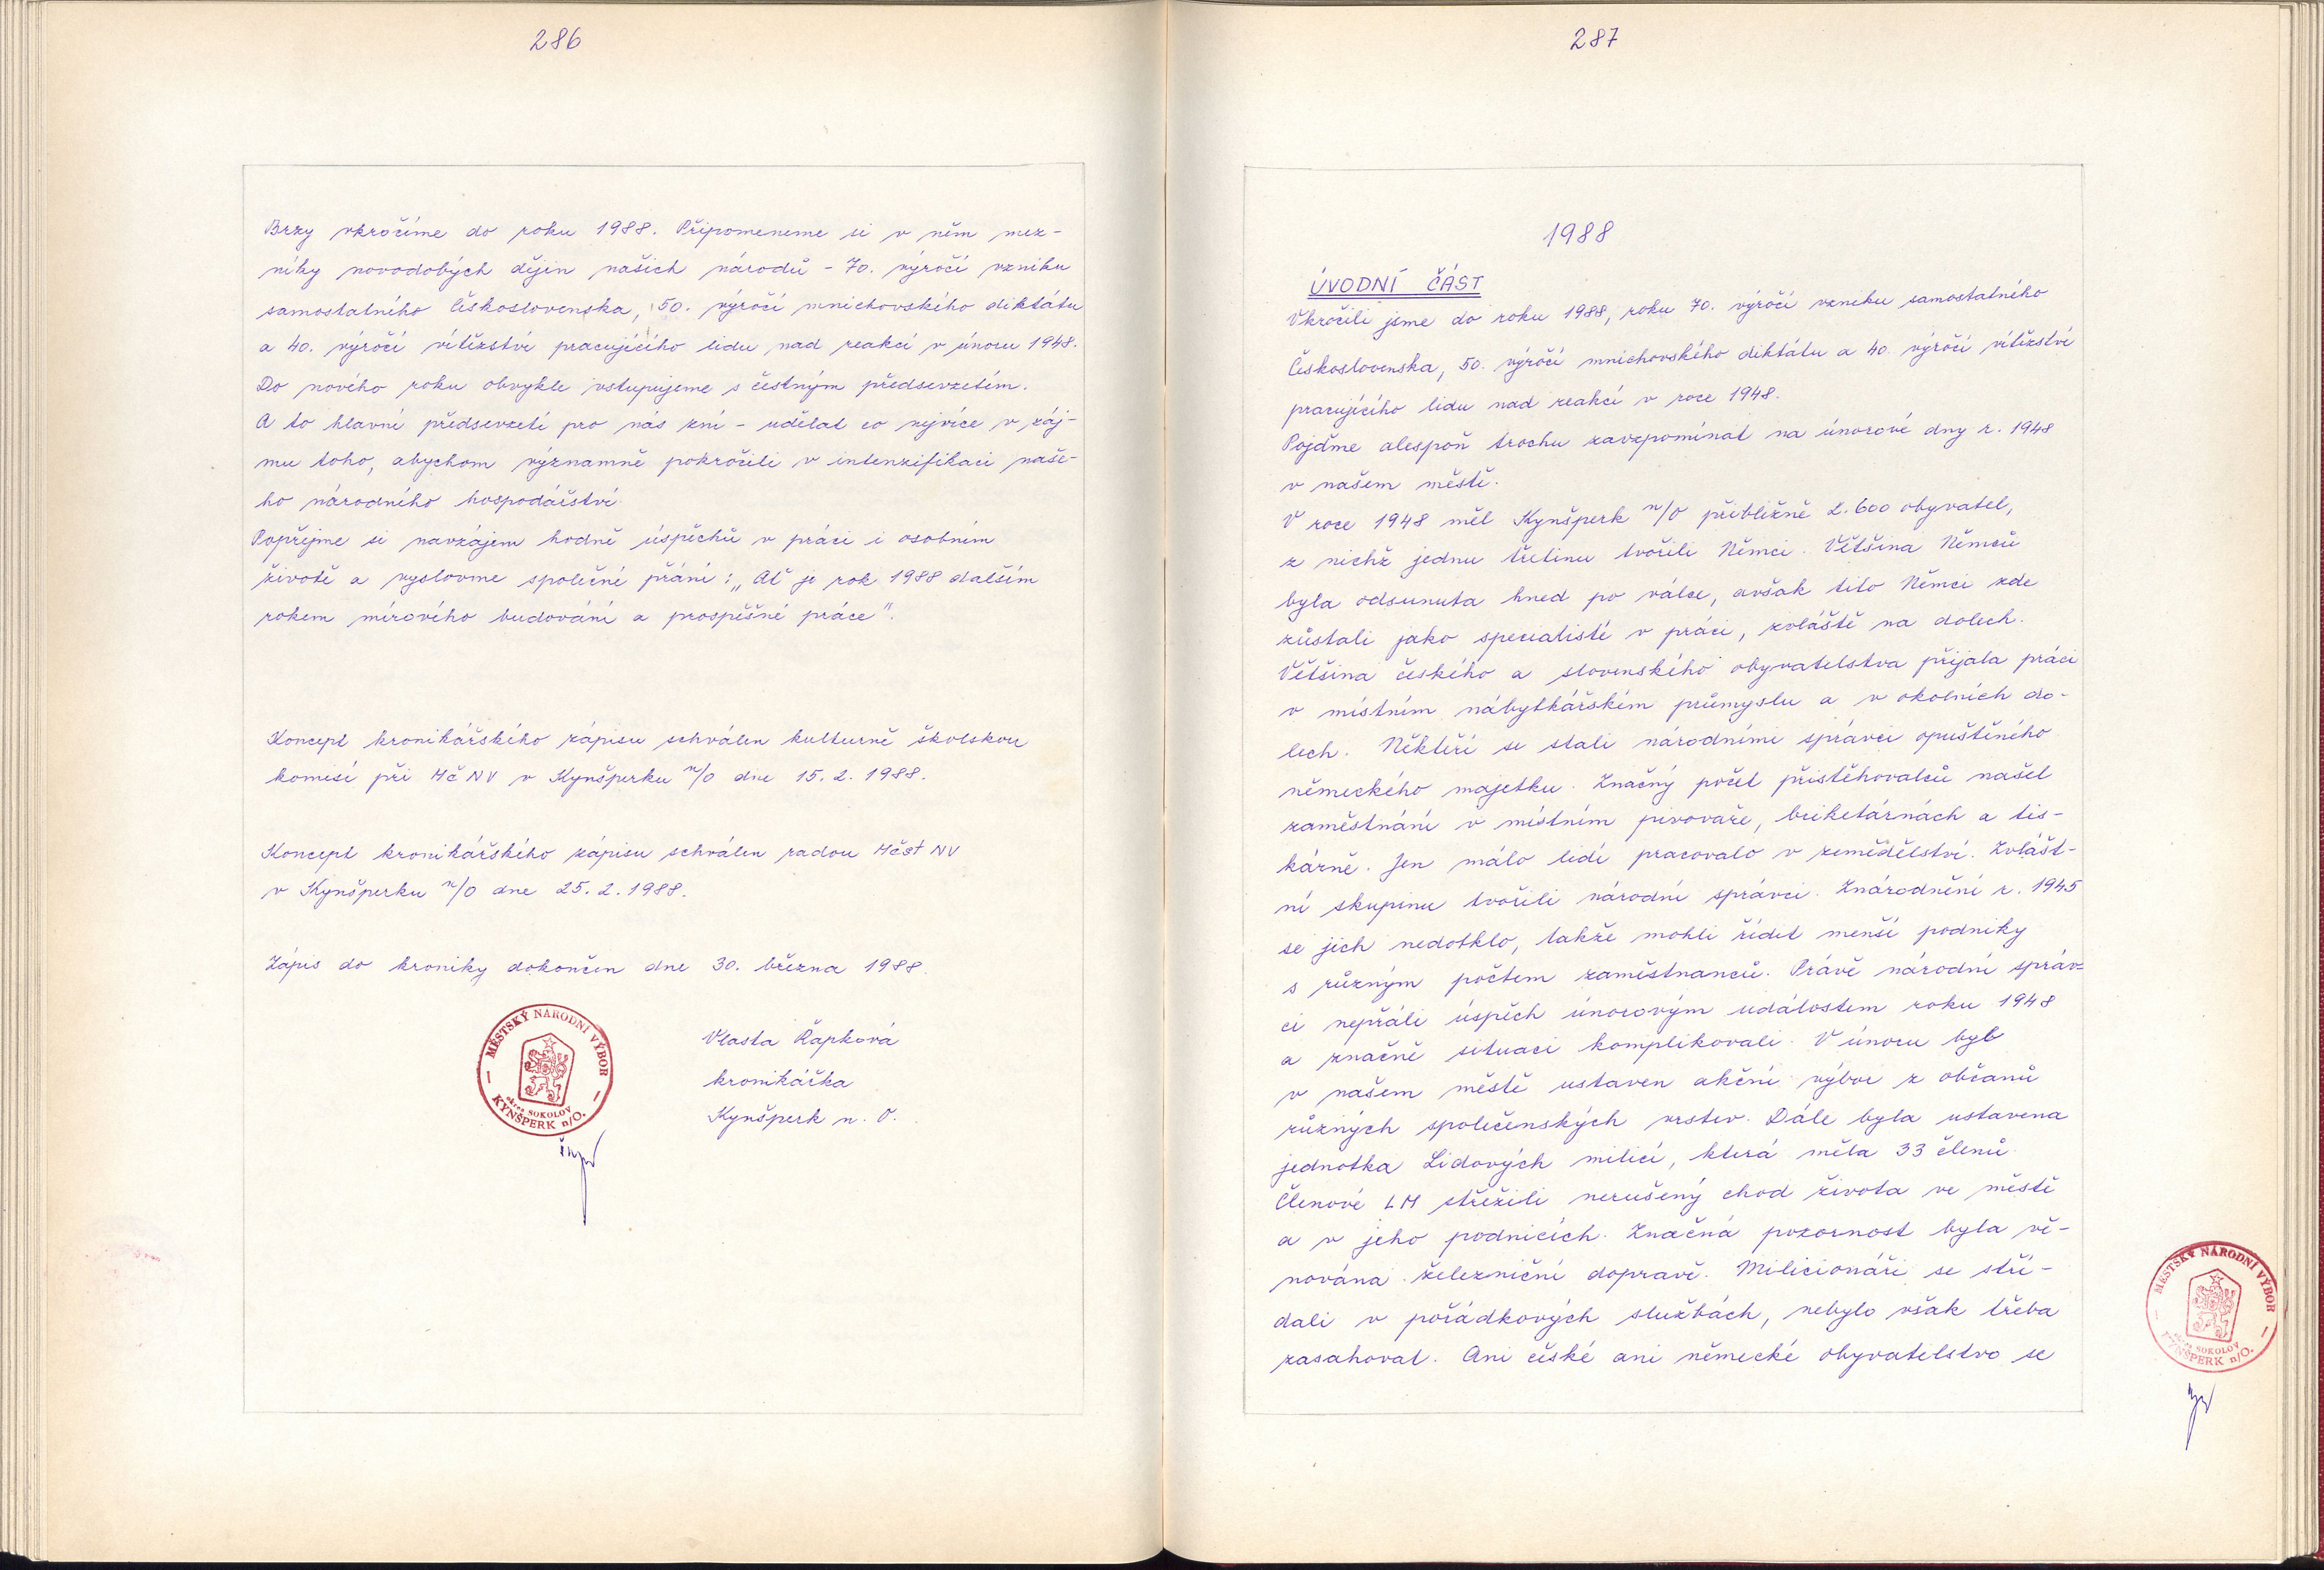 286
Brzy vkročíme do roku 1988. Připomeneme si v něm mez-
níky novodobých dějin našich národů - 70. výročí vzniku
samostatného Československa, 50. výročí mnichovského diktátu
a 40. výročí vítězství pracujícího lidu nad reakcí v únoru 1948.
Do nového roku obvykle vstupujeme s čestným předsevzetím.
A to hlavní předsevzetí pro nás zní - udělat co nejvíce v záj-
mu toho, abychom významně pokročili v intenzifikaci naše-
ho národního hospodářství.
Popřejme si navzájem hodně úspěchů v práci i osobním
životě a vyslovme společné přání: „Ať je rok 1988 dalším
rokem mírového budování a prospěšné práce".
Koncept kronikářského zápisu schválen kulturně školskou
komisí při MěNV v Kynšperku n/O dne 15. 2. 1988.
Koncept kronikářského zápisu schválen radou Měst NV
v Kynšperku n/O dne 25. 2. 1988.
Zápis do kroniky dokončen dne 30. března 1988.
MĚSTSKÝ NÁRODNÍ VÝBOR
okres SOKOLOV
KYNŠPERK n/O.
Vlasta Řapková
kronikářka
Kynšperk n. O.
287
1988
ÚVODNÍ ČÁST
Vkročili jsme do roku 1988, roku 70. výročí vzniku samostatného
Československa, 50. výročí mnichovského diktátu a 40. výročí vítězství
pracujícího lidu nad reakcí v roce 1948.
Pojďme alespoň trochu zavzpomínat na únorové dny r. 1948
v našem městě.
V roce 1948 měl Kynšperk n/O přibližně 2.600 obyvatel,
z nichž jednu třetinu tvořili Němci. Většina Němců
byla odsunuta hned po válce, avšak tito Němci zde
zůstali jako specialisté v práci, zvláště na dolech.
Většina českého a slovenského obyvatelstva přijala práci
v místním nábytkářském průmyslu a v okolních do-
lech. Někteří se stali národními správci opuštěného
německého majetku. Značný počet přistěhovalců našel
zaměstnání v místním pivovaře, briketárnách a tis-
kárně. Jen málo lidí pracovalo v zemědělství. Zvlášt-
ní skupinu tvořili národní správci. Znárodnění r. 1945
se jich nedotklo, takže mohli řídit menší podniky
s různým počtem zaměstnanců. Právě národní správ-
ci nepřáli úspěch únorovým událostem roku 1948
a značně situaci komplikovali. V únoru byl
v našem městě ustaven akční výbor z občanů
různých společenských vrstev. Dále byla ustavena
jednotka Lidových milicí, která měla 33 členů.
Členové LM střežili nerušený chod života ve městě
a v jeho podnicích. Značná pozornost byla vě-
nována železniční dopravě. Milicionáři se stří-
dali v pořádkových službách, nebylo však třeba
zasahovat. Ani české ani německé obyvatelstvo se
MĚSTSKÝ NÁRODNÍ VÝBOR
okres SOKOLOV
KYNŠPERK n/O.